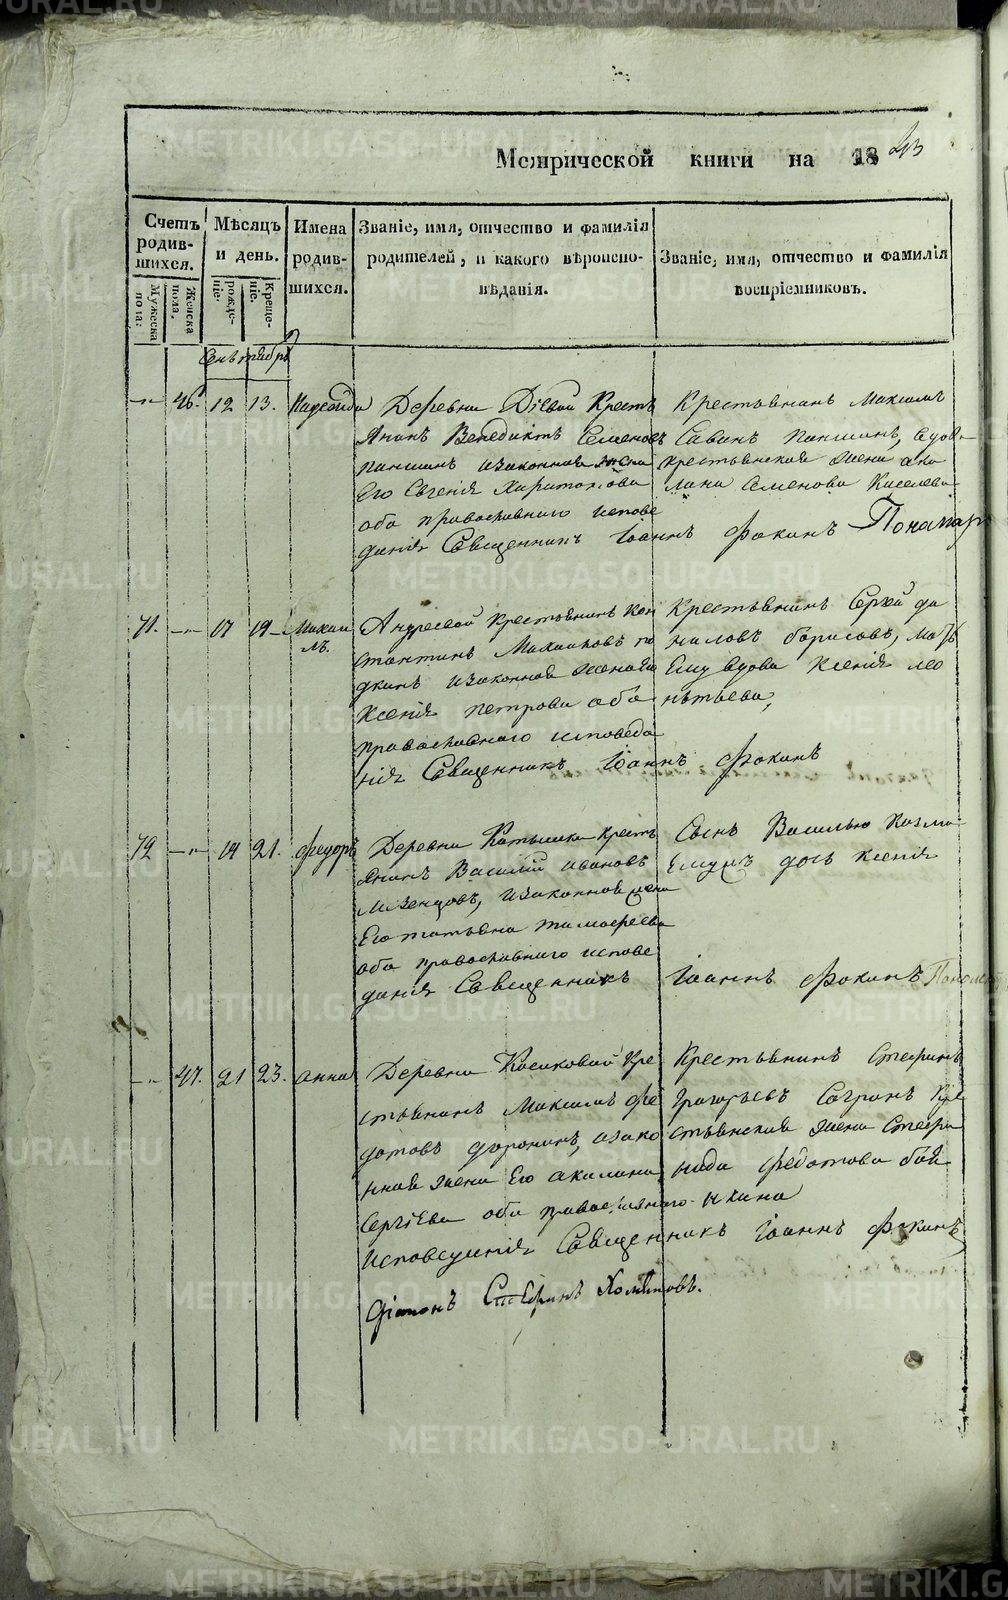 Метрической книги на 1843
Счетъ родив-шихся.
Мужеска пола.
Женска пола.
Мѣсяцъ и день.
рожде-ніе.
Креще-ніе.
Имена родив-шихся.
Званіе, имя, отчество и фамилія
родителей, и какого вѣроиспо-
вѣданія.
Званіе, имя, отчество и фамилія
воспріемниковъ.
Сентября
46. 12 13. Надежда
Деревни Діевой Кресть
янинъ Венедиктъ Семеновъ
паншинъ изаконная жена
Его Евгенія Харитонова
оба православнаго испове
данія Священникъ Іоаннъ Фокинъ Пономарь
Крестьянинъ Максимъ
Савинъ Паншинъ, вдов
крестьянская жена аку
лина Семенова Киселева
71. 17 19 Михаи
лъ.
Андреевой крестьянинъ Кон
стантинъ Михаиловъ
изаконная жена
Ксенія петрова оба
православнаго исповеда
нія Священникъ Іоаннъ Фокинъ
Крестьянинъ Сергей да
ниловъ борисовъ, мать
Ему вдова Ксенія лео
нтьева,
72 19 21. Федоръ
Деревни крестъ
янинъ Василий ивановъ
Мезенцовъ, изаконная жена
Его татьяна тимофеева
оба православнаго испове
данія Священникъ Іоаннъ Фокинъ
Сынъ Василью Козма
дочь Ксенія
47. 21 23. анна
Деревни Косиковой Кре
стьянинъ Максимъ Фе
дотовъ доронинъ, изако
нная жена Его акилина
Сергіева оба православнаго
исповеданія Священникъ Іоаннъ Фокинъ
Крестьянинъ Стефанъ
григорьевъ Согринъ Кре
стьянская жена Стефа
нида федотова бой
кина
діаконъ Стефанъ Хомяковъ.
METRIKI.GASO-URAL.RU